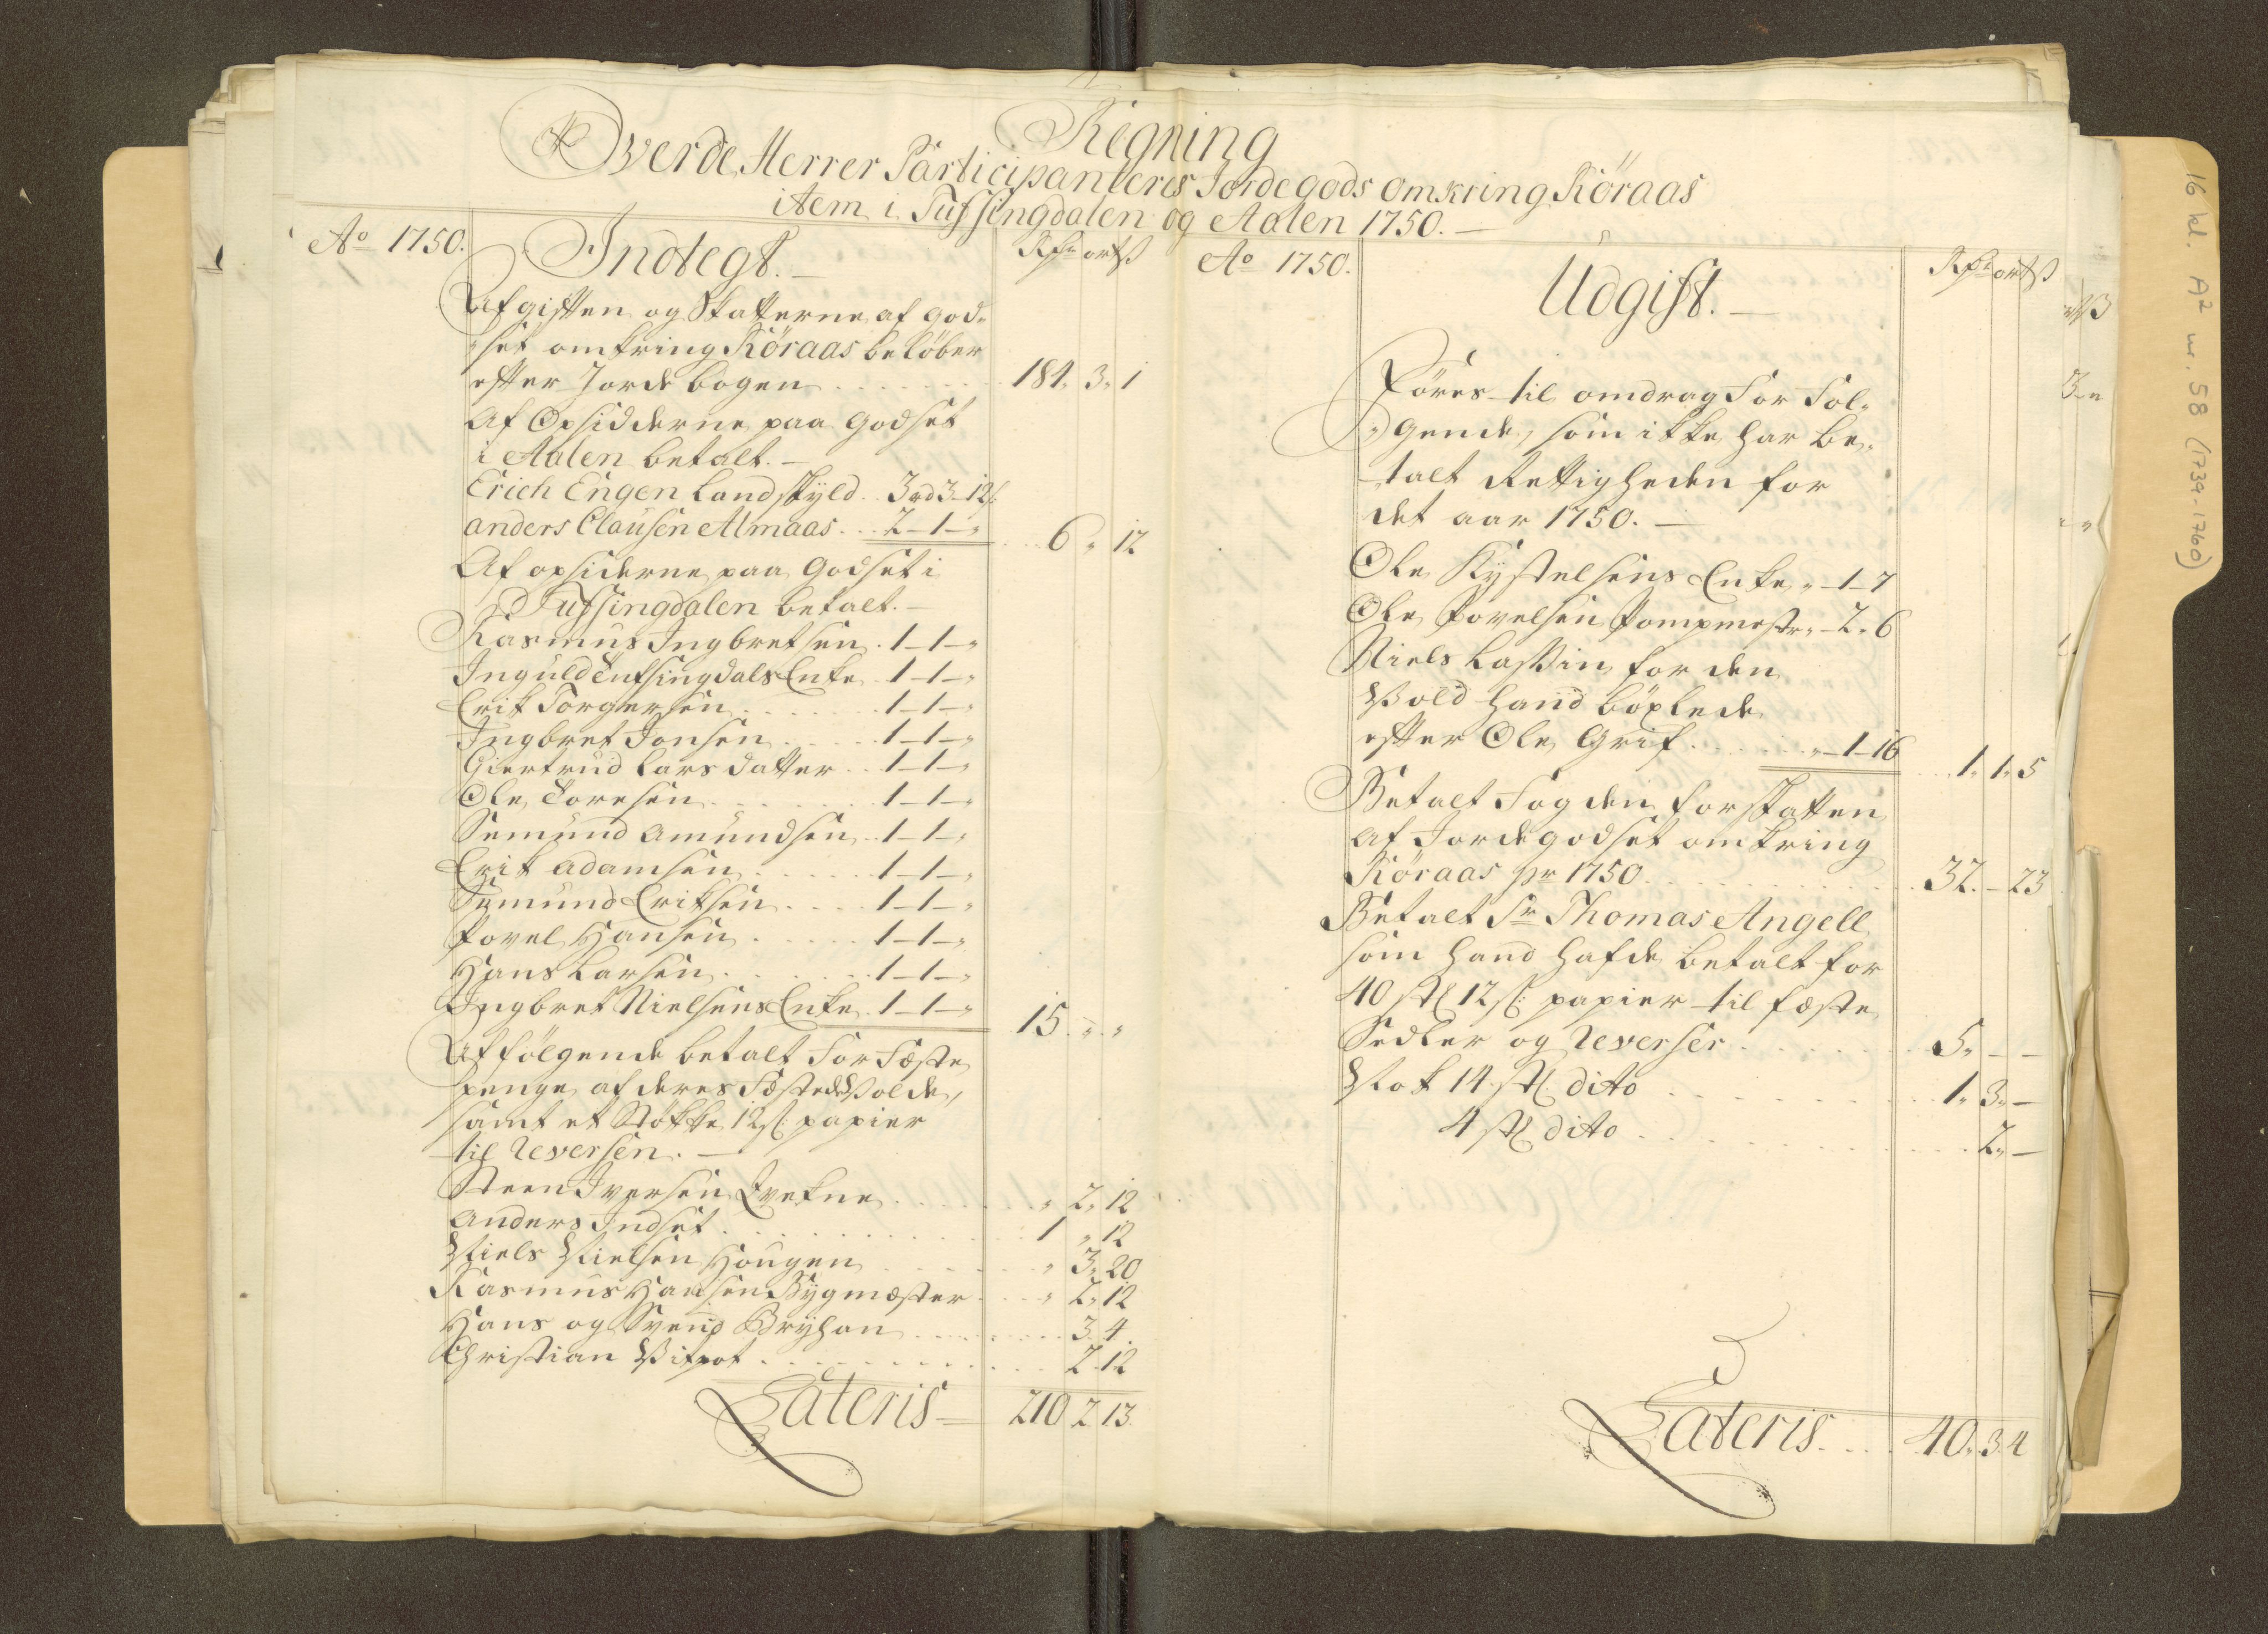 Regning
Over de Herrer Participanteres Jordegods omkring Röraas
item i Tufsingdalen og Aalen 1750.
Ao 1750.
Indtegt.
Rdr ort ß
Afgiften og Skatterne af god-
set omkring Röraas beløber
efter Jordebogen 184. 3. 1
Af Opsidderne paa Godset
i Aalen betalt.
Erich Engen Landskyld 3 rd 3-12 ß
anders Clausen Almaas 2-1-" 6 " 12
Af opsiderne paa Godset i
Tufsingdalen betalt.
Rasmus Ingbretsen 1-1-"
Inguld Tufsingdals Enke 1-1-"
Erik Torgersen 1-1-"
Ingbret Jonsen 1-1-"
Giertrud Larsdatter 1-1-"
Ole Toresen 1-1-"
Semund Amundsen 1-1-"
Erik Adamsen 1-1-"
Semund Eriksen 1-1-"
Povel Hansen 1-1-"
Hans Larsen 1-1-"
Ingbret Nielsens Enke 1-1-" 15 " "
Af følgende betalt for Fæste
penge af deres Fæstede Volde,
samt et Støkke 12 ß papier
til Reversen.
Steen Iversen Qvekne " 2 " 12
Anders Indset 1 " 12
Niels Nielsen Hougen " 3 " 20
Rasmus Hansen Bygmæster " 2 " 12
Hans og Svend Brÿhan 3 4
Christian 2 12
Lateris 210 2 13
Ao 1750.
Udgift.
Rdr ort ß
Föres til omdrag For Föl-
gende, som ikke har be-
talt Rettigheden for
det aar 1750.
Ole Kystelsens Enke " -1-7
Ole Povelsen Pompmestr " -2 " 6
Niels Lassin for den
Vold hand böxlede
efter Ole Grif " -1-16 1 " 1 " 5
Betalt Fogden for skatten
af Jordegodset omkring
Röraas pr 1750 32. - 23
Betalt Sr Thomas Angell
som hand hafde betalt for
40 st 12 ß papier til fæste
Sedler og Reverser 5 " - -
Nok 14 st dito 1 " 3 " -
4 st dito 2 " -
Lateris 40 " 3 4
16 kl. A2 nr. 58 (1739-1760)